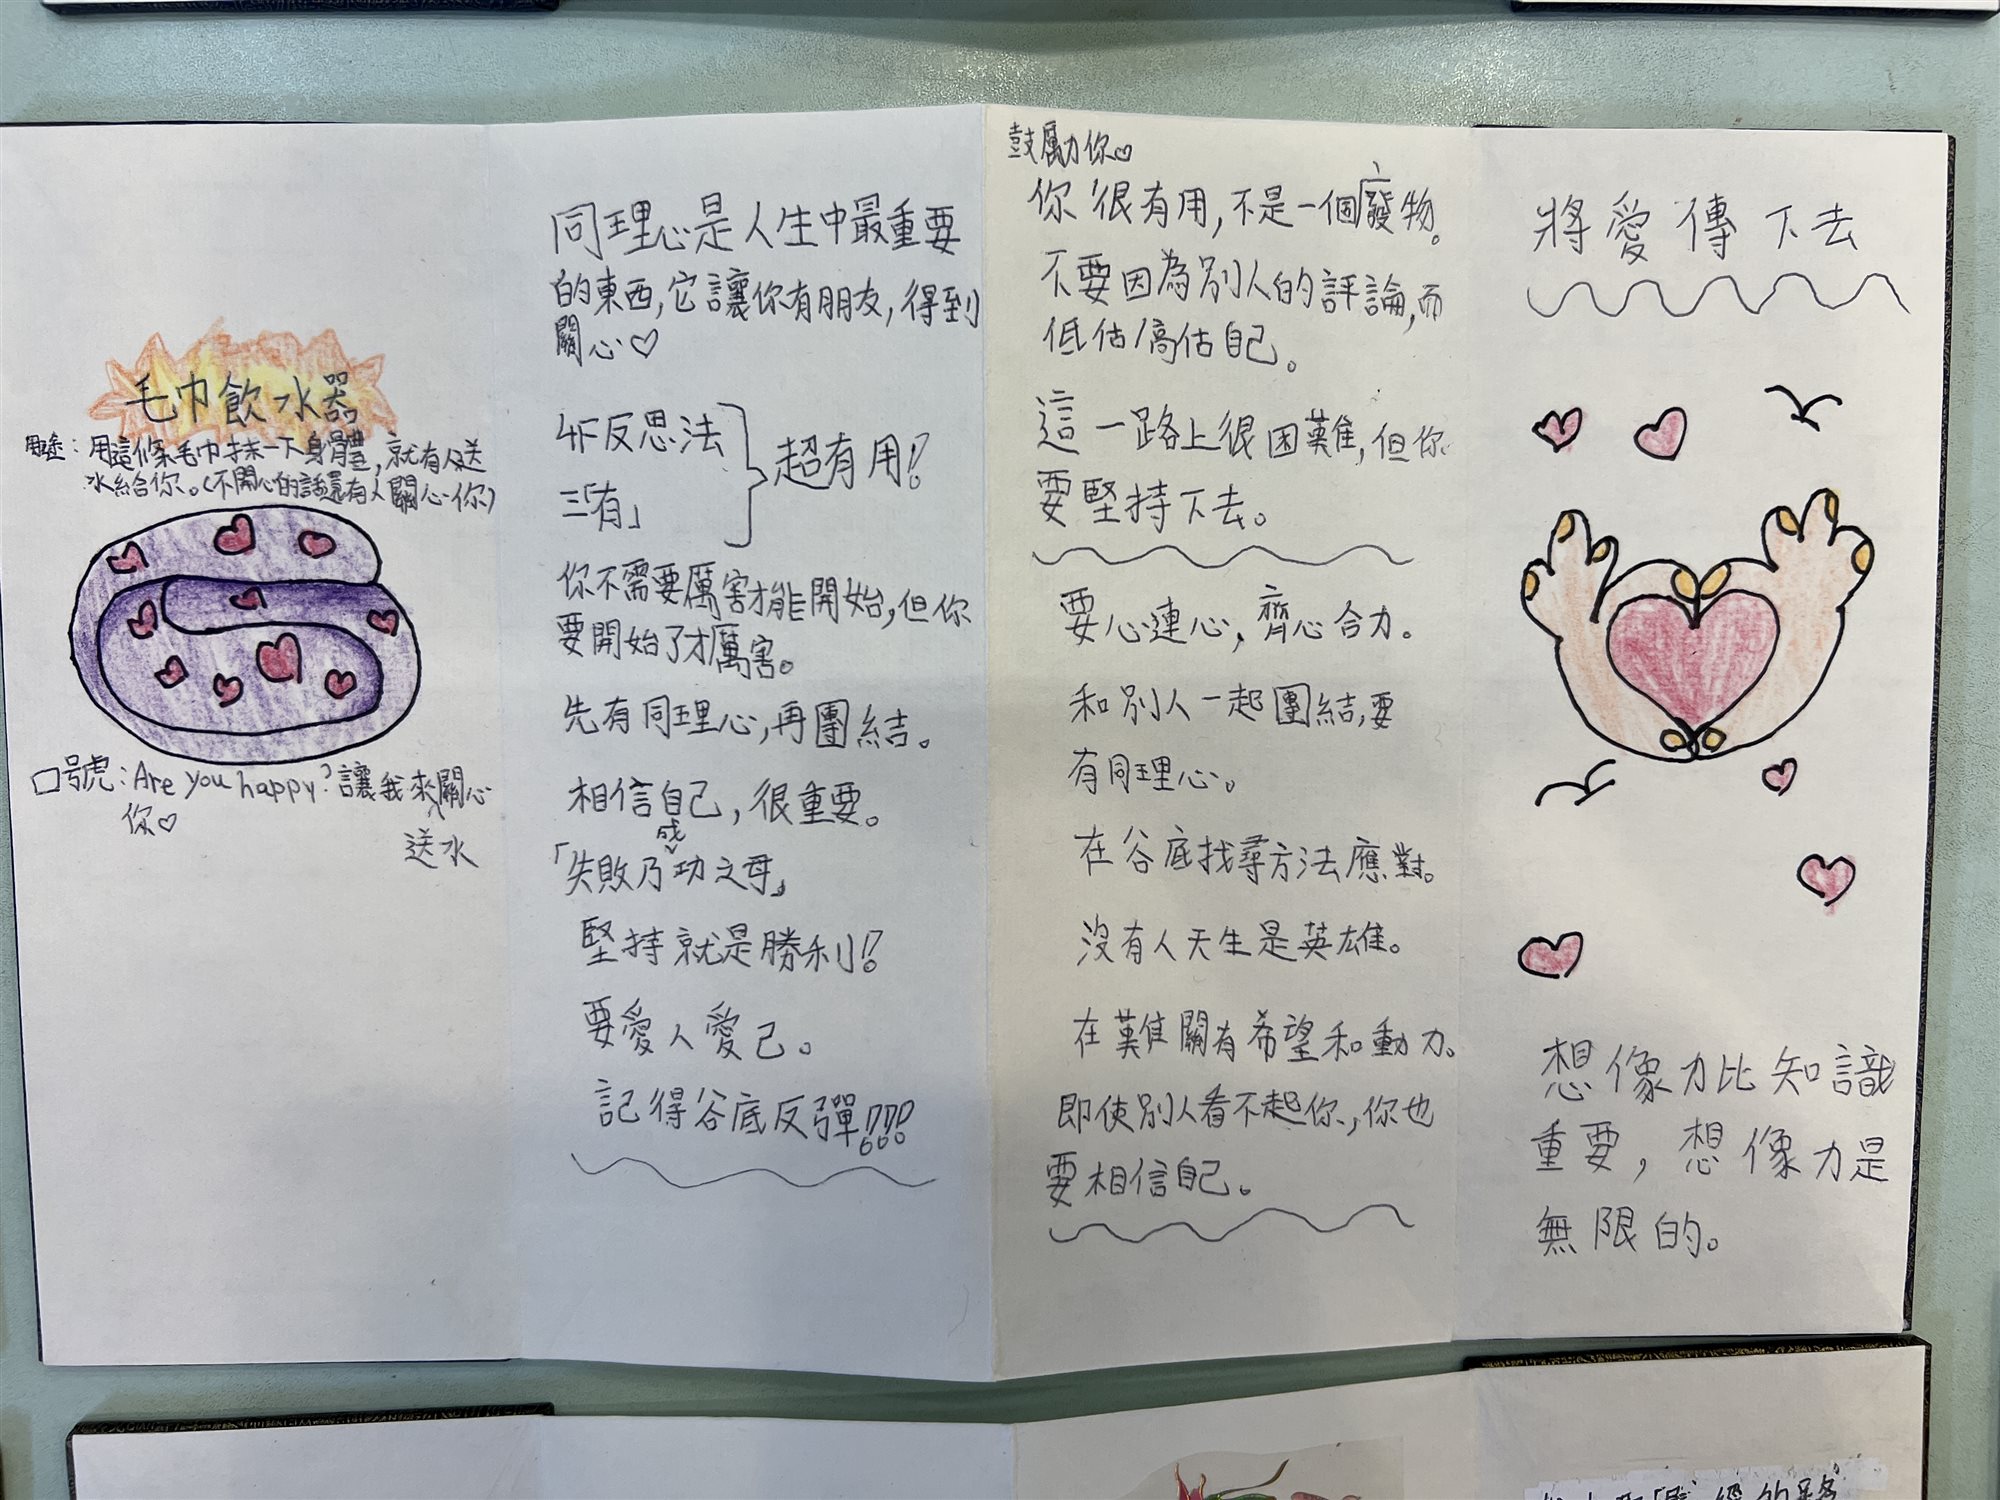 毛巾飲水器
用途：用這條毛巾抹一下身體，就有人送
水給你。（不開心的話還有人關心你）
口號：Are you happy? 讓我來關心
你♡
送水
同理心是人生中最重要
的東西，它讓你有朋友，得到
關心♡
4F反思法
三「有」
超有用！
你不需要厲害才能開始，但你
要開始了才厲害。
先有同理心，再團結。
相信自己，很重要。
「失敗乃成功之母」
堅持就是勝利！
要愛人愛己。
記得谷底反彈！！！
鼓勵你♡
你很有用，不是一個廢物。
不要因為別人的評論，而
低估/高估自己。
這一路上很困難，但你
要堅持下去。
要心連心，齊心合力。
和別人一起團結，要
有同理心。
在谷底找尋方法應對。
沒有人天生是英雄。
在難關有希望和動力。
即使別人看不起你，你也
要相信自己。
將愛傳下去
想像力比知識
重要，想像力是
無限的。